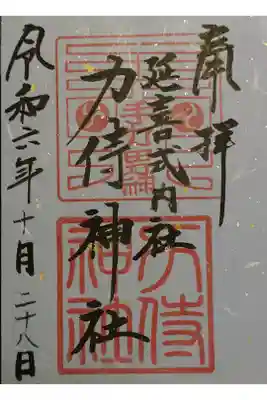 奉拝
延喜式内社
力侍神社
令和六年十月二十八日
力侍
神社